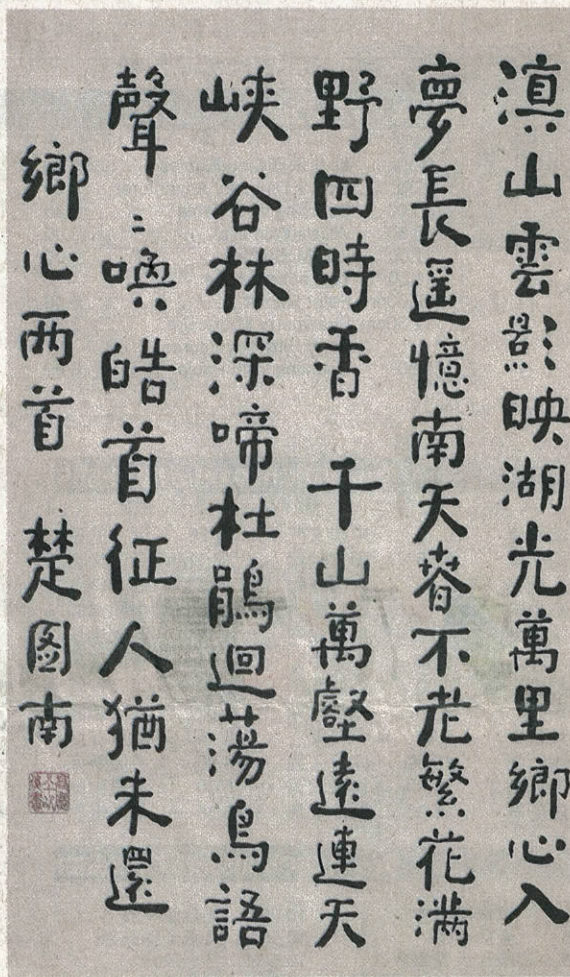 滇山雲影映湖光萬里鄉心入
夢長遥憶南天春不老繁花滿
野四時香 千山萬壑遠連天
峽谷林深啼杜鵑迴蕩鳥語
聲〻喚皓首征人猶未還
鄉心兩首 楚圖南